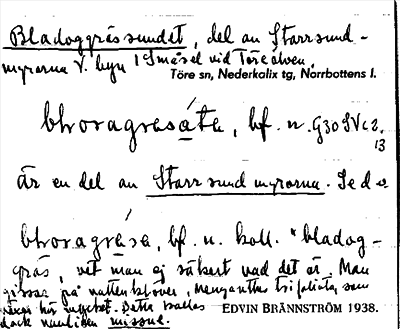 Bladoggrässundet, del av Starrsund-
myrorna V. byn Småsel vid Töreälven,
Töre sn, Nederkalix tg, Norrbottens l.
bf. n. G30SVc2.
13
är en del av Starrsundmyrorna. Se d.o
bf. n. koll. "bladog-
gräs, vet man ej säkert vad det är. Man
gissar på vattenklöver, Menyanthes trifoliata, som
växer här mycket. Detta kallas
dock vanligen missne.
EDVIN BRÄNNSTRÖM 1938.